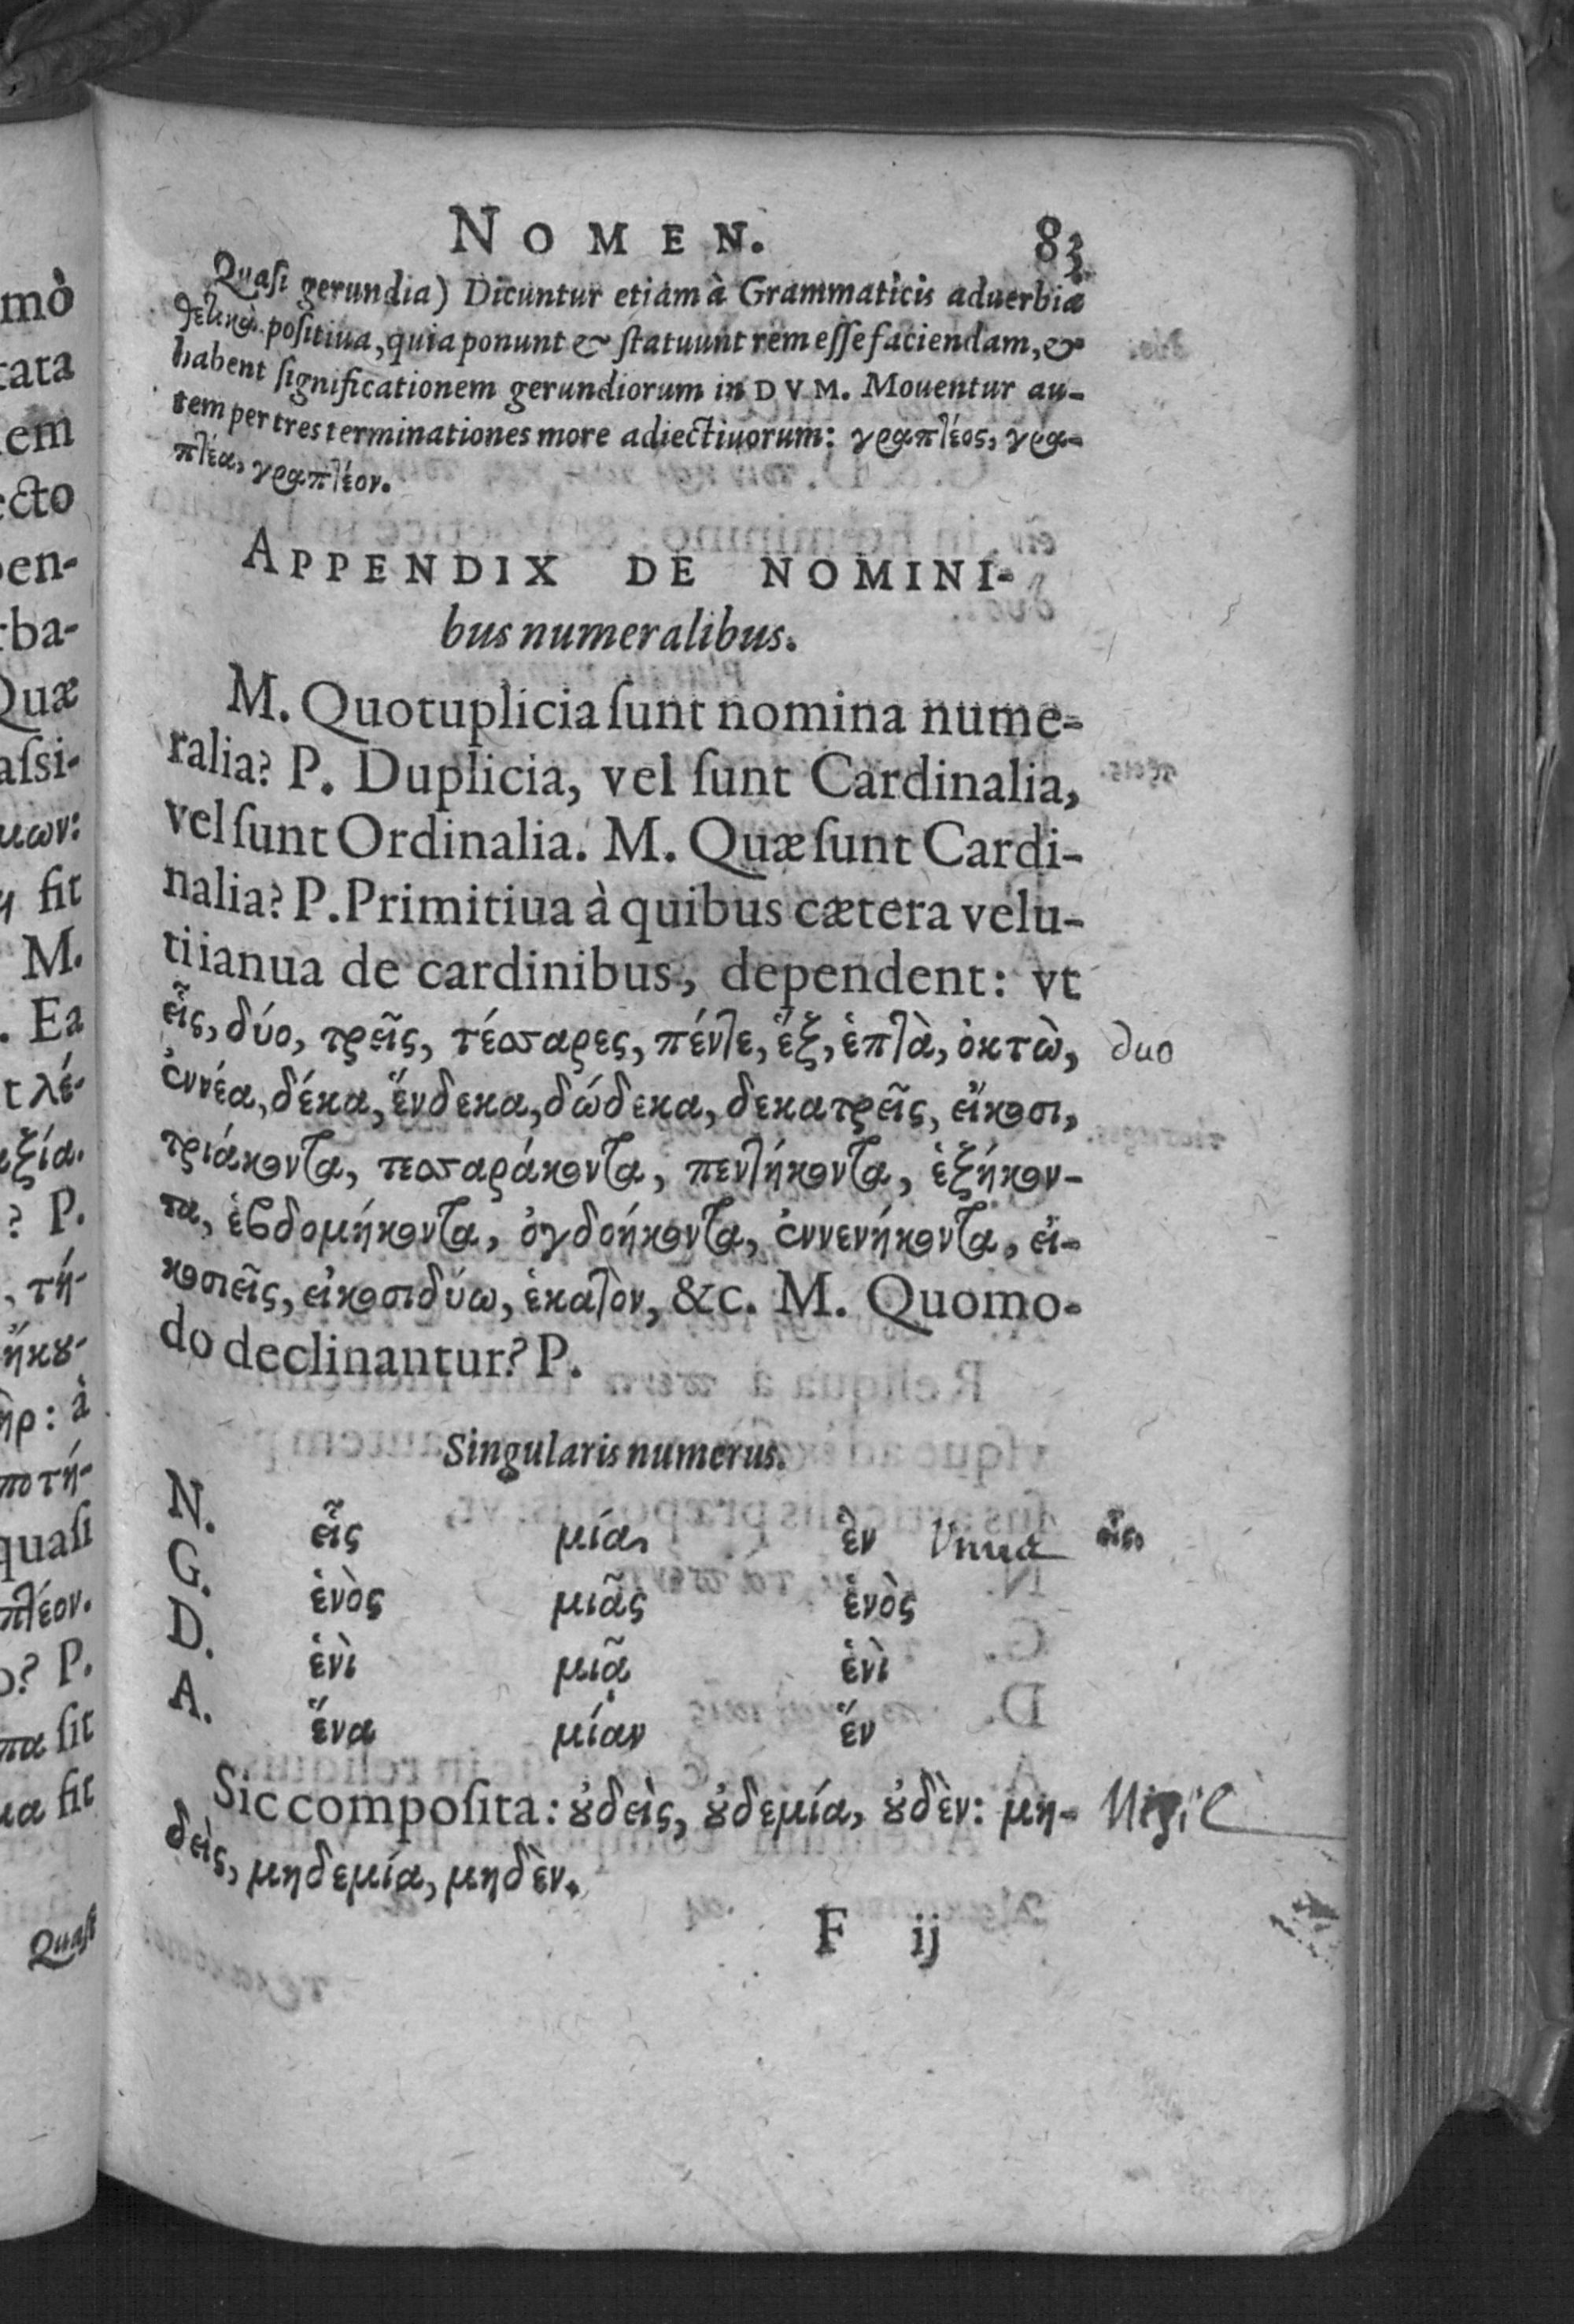 NOMEN. 83
Quaſi gerundia) Dicuntur etiam à Grammaticis aduerbia
θετικὰ. poſitiua, quia ponunt & ſtatuunt rem eſſe faciendam, &
habent ſignificationem gerundiorum in DVM. Mouentur au-
tem per tres terminationes more adiectiuorum: γραπτέος, γρα-
πτέα, γραπτέον.
APPENDIX DE NOMINI-
bus numeralibus.
M. Quotuplicia ſunt nomina nume-
ralia? P. Duplicia, vel ſunt Cardinalia,
vel ſunt Ordinalia. M. Quæ ſunt Cardi-
nalia? P. Primitiua à quibus cætera velu-
ti ianua de cardinibus, dependent: vt
εἷς, δύο, τρεῖς, τέσσαρες, πέντε, ἕξ, ἑπτὰ, ὀκτὼ, duo
ἐννέα, δέκα, ἕνδεκα, δώδεκα, δεκατρεῖς, εἴκοσι,
τριάκοντα, τεσσαράκοντα, πεντήκοντα, ἑξήκον-
τα, ἑβδομήκοντα, ὀγδοήκοντα, ἐννενήκοντα, εἰ-
κοσιεῖς, εἰκοσιδύω, ἑκατὸν, &c. M. Quomo-
do declinantur? P.
Singularis numerus.
N. εἷς μία, ἓν Vnus εἷς
G. ἑνὸς μιᾶς ἑνὸς
D. ἑνὶ μιᾷ ἑνὶ
A. ἕνα μίαν ἕν
Sic compoſita: ȣ̓δεὶς, ȣ̓δεμία, ȣ̓δὲν: μη-
δεὶς, μηδεμία, μηδὲν.
F ij
mò
tata
em
ecto
en-
ba-
Quæ
aſsi-
κων:
fit
M.
. Ea
t λέ-
εξία.
? P.
, τή-
ήκȣ-
ηρ: à
ποτή-
quaſi
πτέον.
o? P.
πα ſit
μα fit
Quaſi